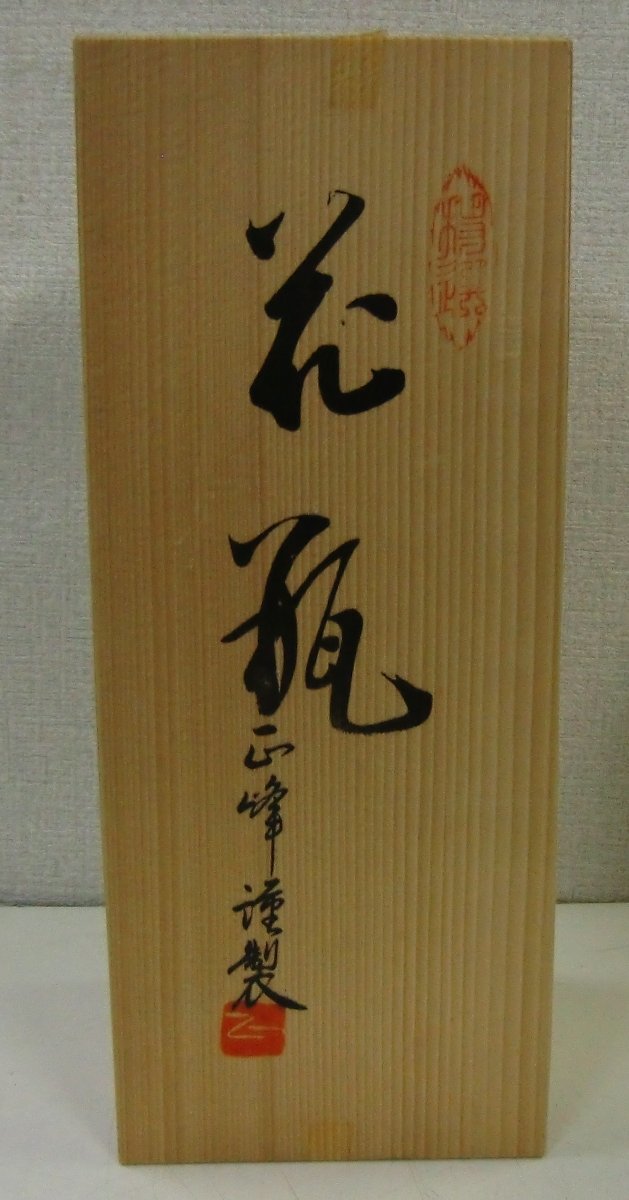 花瓶
正峰謹製